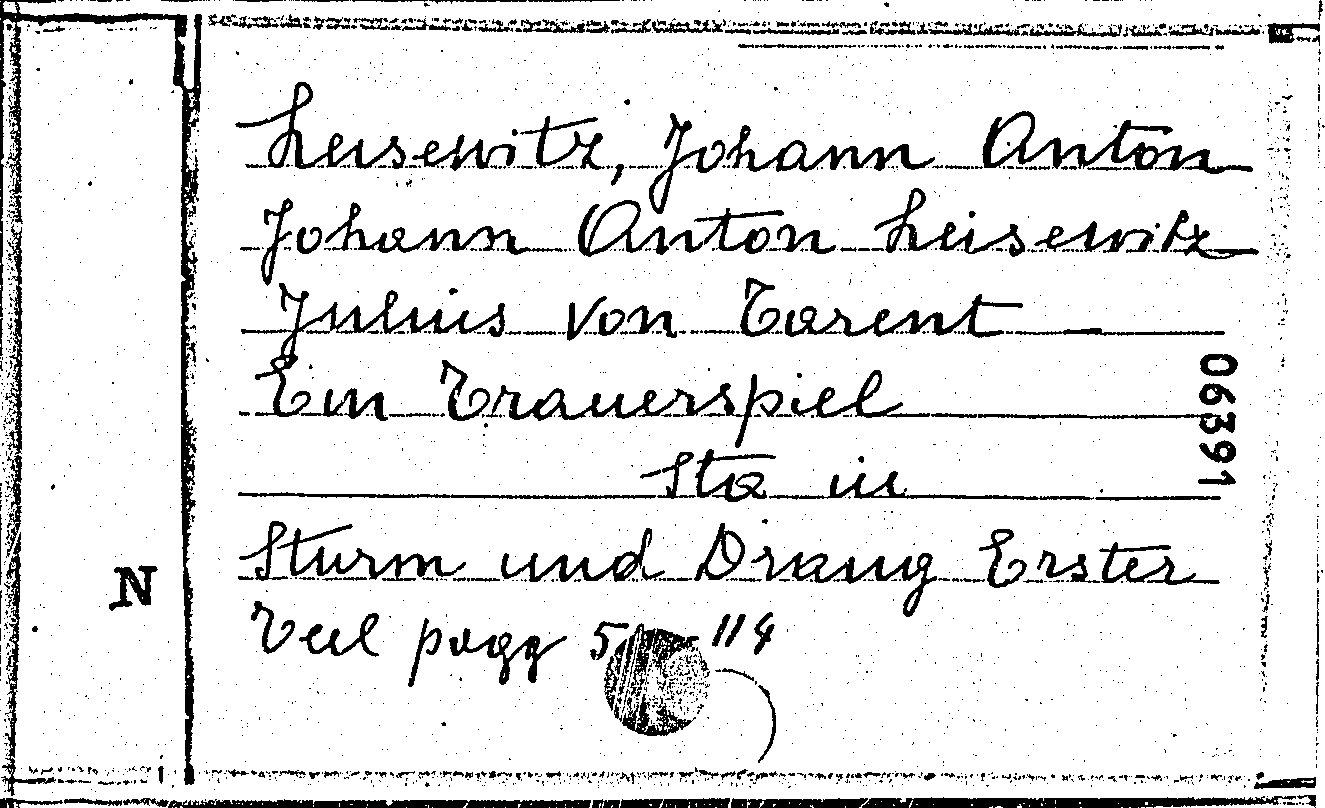 Leisewitz, Johann Anton
Johann Anton Leisewitz
Julius von Tarent –
Ein Trauerspiel
Sta in
Sturm und Drang Erster
Teil pagg 114
06391
N